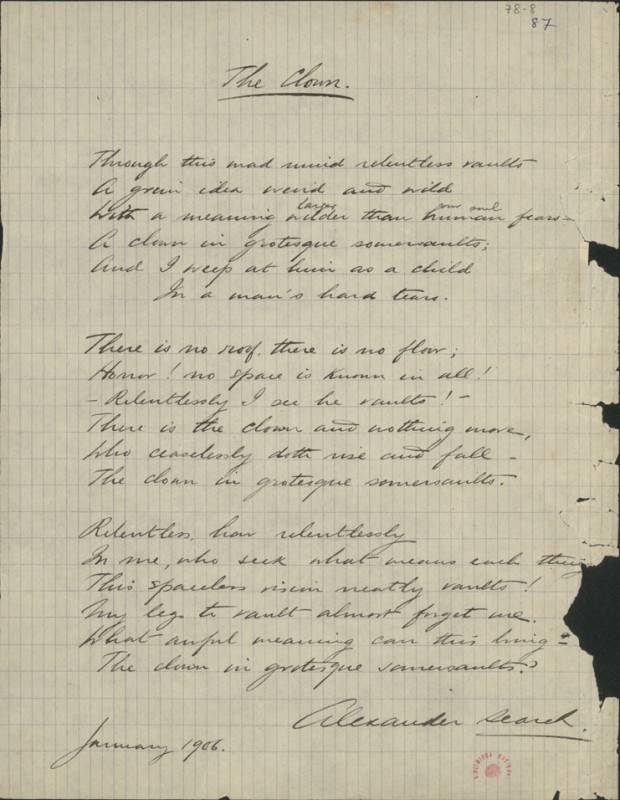 78-8
87
The Clown.
Through this mad mind relentless vaults
A grim idea weird and wild
larger our soul
With a meaning wilder than human fears -
A clown in grotesque somersaults;
And I weep at him as a child
In a man's hard tears.
There is no roof, there is no floor;
Horror! no space is known in all!
- Relentlessly I see he vaults! -
There is the clown and nothing more,
Who ceaselessly doth rise and fall -
The clown in grotesque somersaults.
Relentless, how relentlessly
In me, who seek what means each thing
This spaceless vision neatly vaults!
My legs to vault almost forget me.
What awful meaning can this bring -
The clown in grotesque somersaults?
Alexander Search.
January 1906.